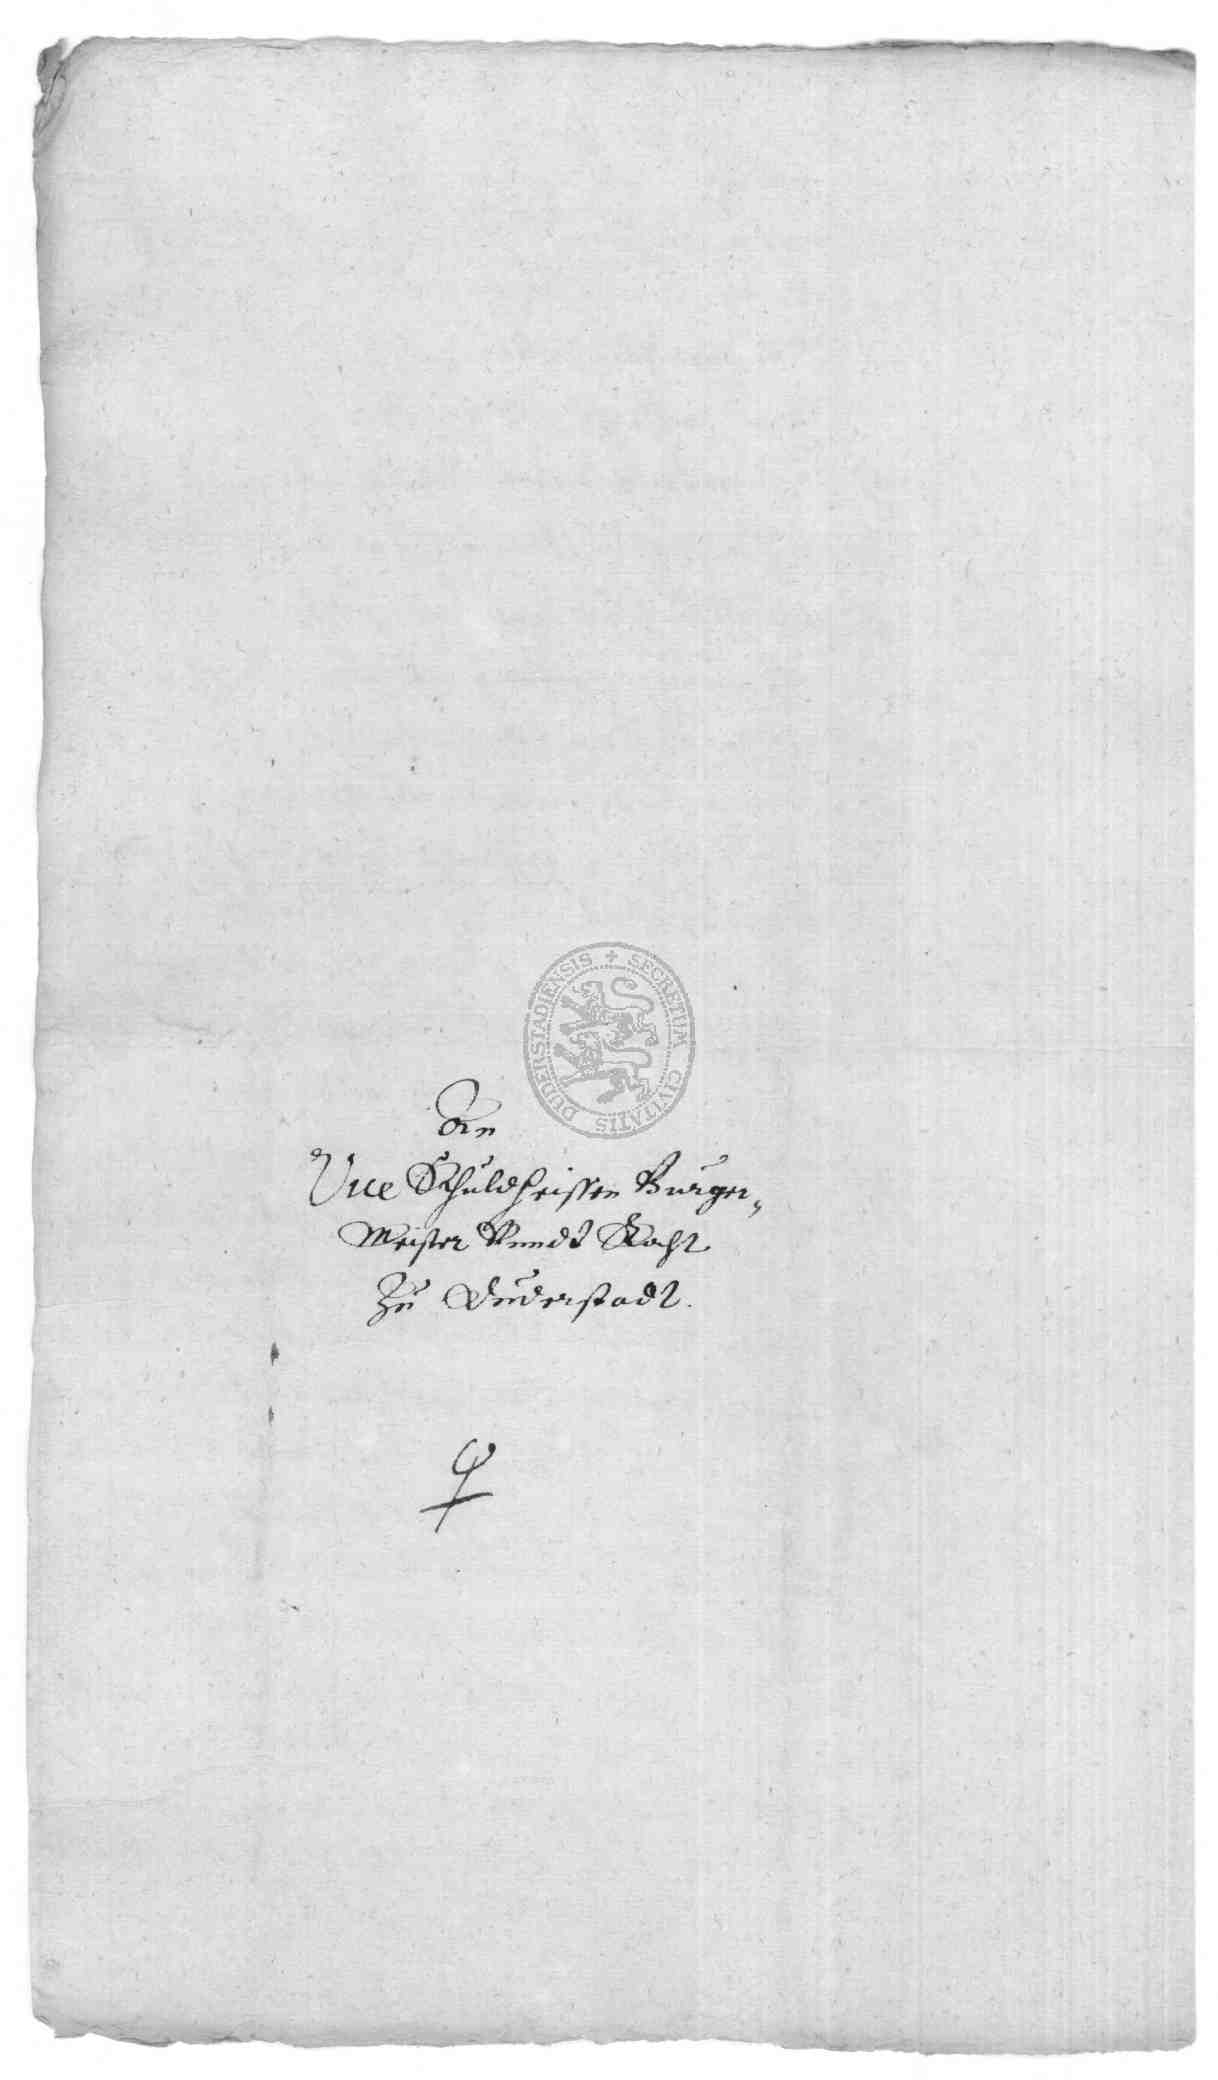 SECRETUM CIVITATIS DUDERSTADIENSIS
An
Vice Schuldheissen Burger„
Meister Vundt Raht
Zu Duderstadt.